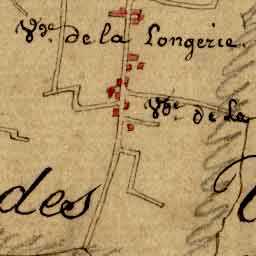 Vge. de la Longerie.
Vge. de la
des